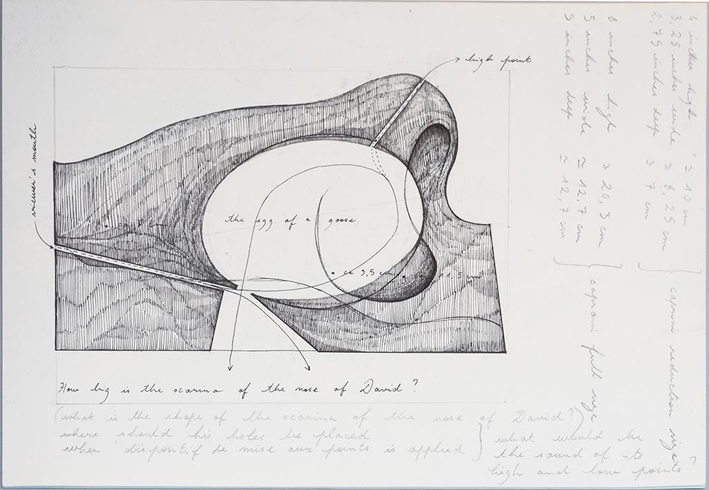 high point
viewer's mouth
the egg of a goose
How big is the ocarina of the nose of David?
(what is the shape of the ocarina of the nose of David?)
where should his holes be placed
when dispositif de mise aux points is applied
what would be
the sound of its
high and low points?
4 inches high ≃ 10 cm
3,25 inches wide ≃ 8,25 cm
2,75 inches deep ≃ 7 cm
caproni reduction size
8 inches high ≃ 20,3 cm
5 inches wide ≃ 12,7 cm
5 inches deep ≃ 12,7 cm
caproni full size